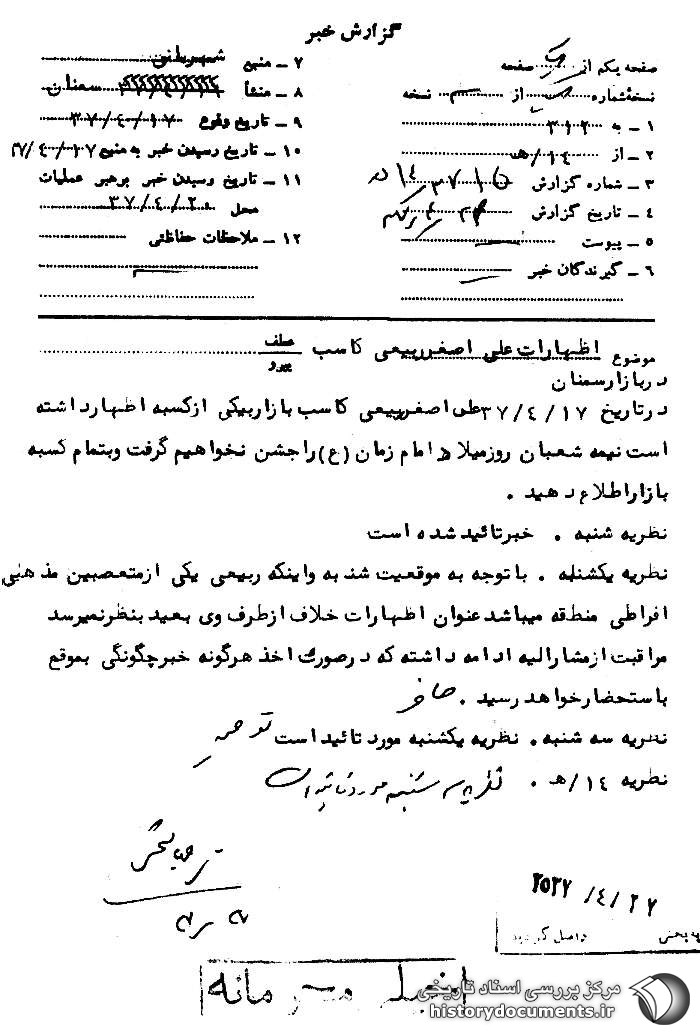 گزارش خبر
صفحه یکم از صفحه
نسخه‌شماره از نسخه
۱ ـ به ۳۱۲
۲ ـ از ۱۴/ هـ
۳ ـ شماره گزارش
۴ ـ تاریخ گزارش
۵ ـ پیوست
۶ ـ گیرندگان خبر
۷ ـ منبع شهربانی
۸ ـ منشأ سمنان
۹ ـ تاریخ وقوع ۳۷/۴/۱۷
۱۰ ـ تاریخ رسیدن خبر به منبع ۳۷/۴/۱۷
۱۱ ـ تاریخ رسیدن خبر برهبر عملیات
محل ۳۷/۴/۲۰
۱۲ ـ ملاحظات حفاظتی
موضوع اظهارات علی اصغر ربیعی کاسب عطف
پیرو
در بازار سمنان
در تاریخ ۳۷/۴/۱۷ علی اصغر ربیعی کاسب بازار بیکی از کسبه اظهار داشته
است نیمه شعبان روز میلاد امام زمان (ع) را جشن نخواهیم گرفت و بتمام کسبه
بازار اطلاع دهید .
نظریه شنبه . خبر تائید شده است
نظریه یکشنبه . با توجه به موقعیت شنبه و اینکه ربیعی یکی از متعصبین مذهبی
افراطی منطقه میباشد عنوان اظهارات خلاف از طرف وی بعید بنظر نمیرسد
مراقبت از مشارالیه ادامه داشته که در صورت اخذ هرگونه خبر چگونگی بموقع
باستحضار خواهد رسید .
نظریه سه شنبه . نظریه یکشنبه مورد تائید است
نظریه ۱۴/ هـ . نظریه سه شنبه مورد تائید است
۲۵۳۷/۴/۲۷
بایگانی واصل گردید
خیلی محرمانه
مرکز بررسی اسناد تاریخی
historydocuments.ir